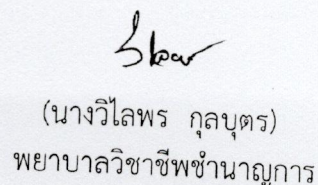 (นางวิไลพร กุลบุตร)
พยาบาลวิชาชีพชำนาญการ